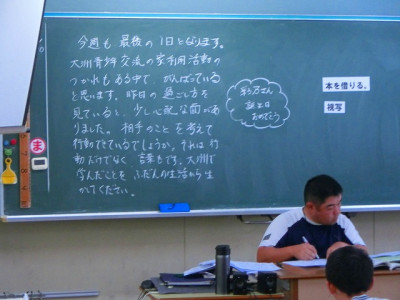 今週も最後の1日となります。
大洲青少年交流の家利用活動の
つかれもある中で がんばっている
と思います。昨日の過ごし方を
見ていると、少し心配な面があ
りました。相手のことを考えて
行動できているでしょうか。それは行
動だけでなく 言葉もです。大洲で
学んだことを ふだんの生活から生
かしてください。
さん
誕生日
おめでとう
本を借りる。
視写
ま